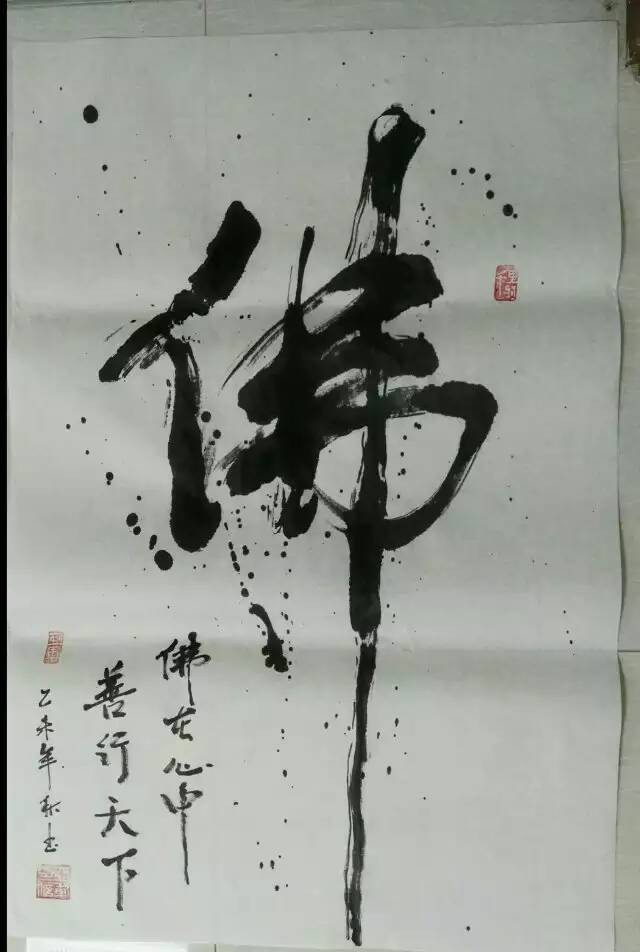 佛
佛在心中
善行天下
乙未年秋書